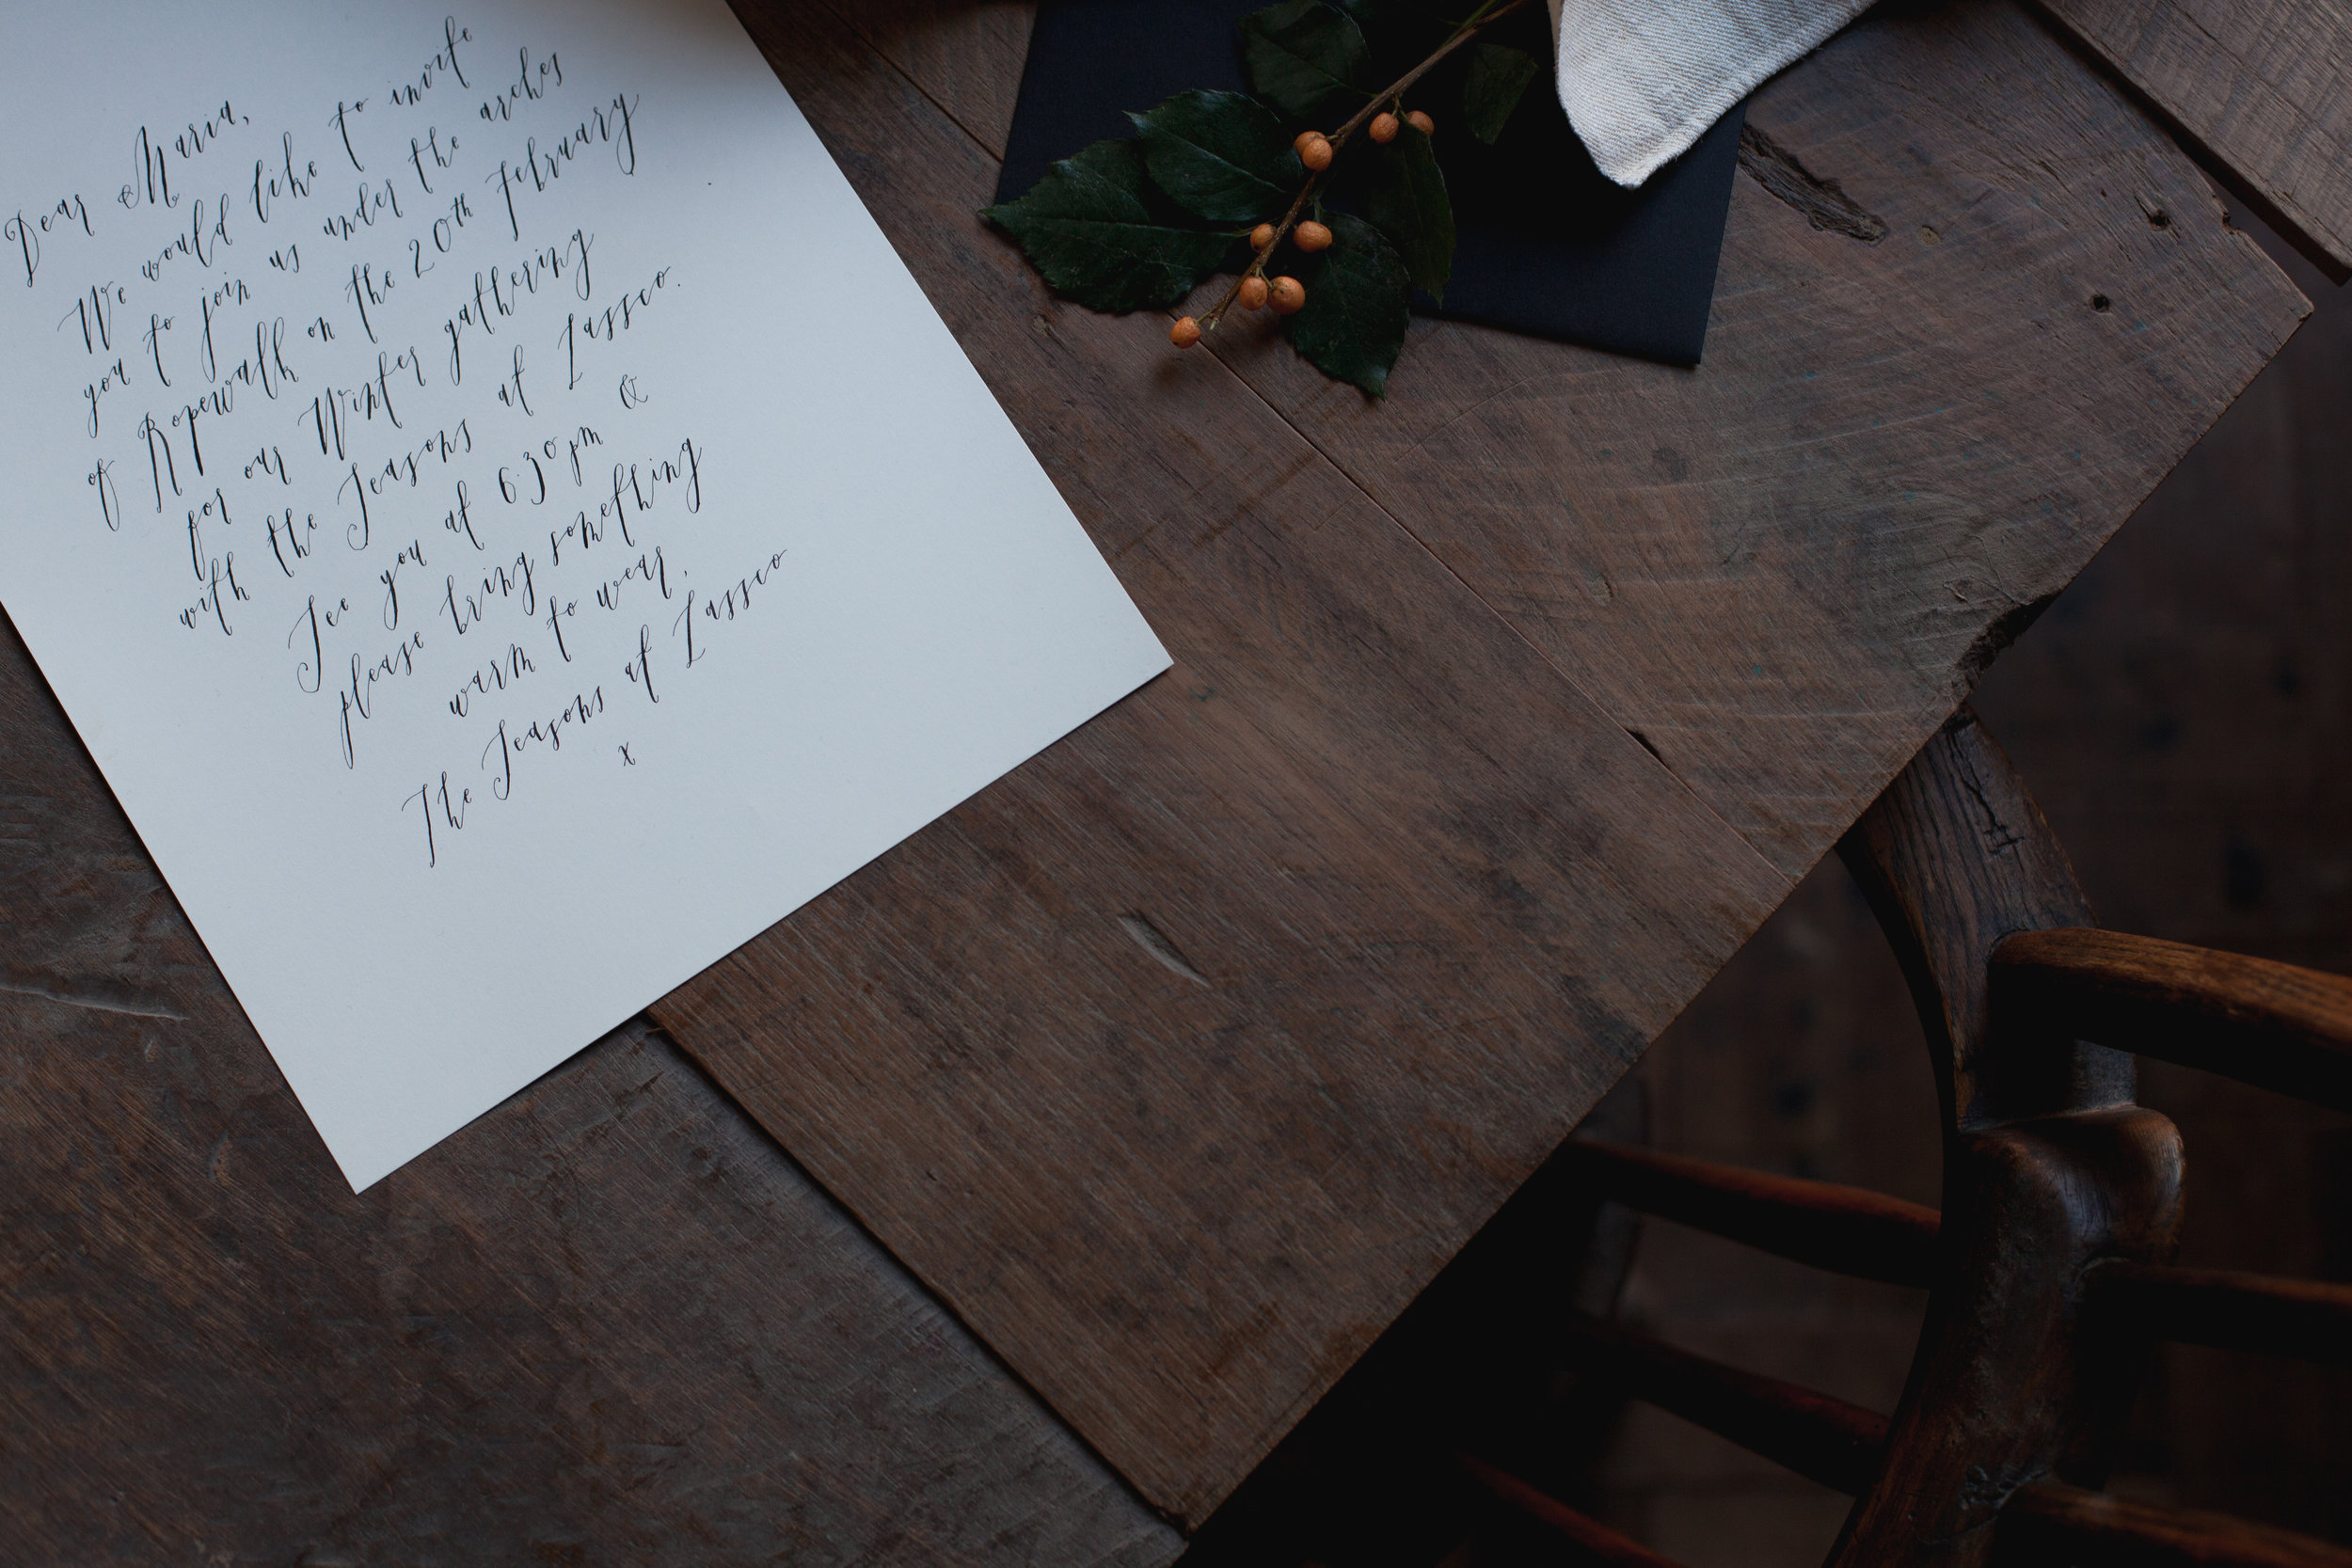 Dear Maria,
We would like to invite
you to join us under the arches
of Ropewalk on the 20th February
for our Winter gathering
with the Seasons at Lassco.
See you at 6:30pm &
please bring something
warm to wear,
The Seasons at Lassco
x